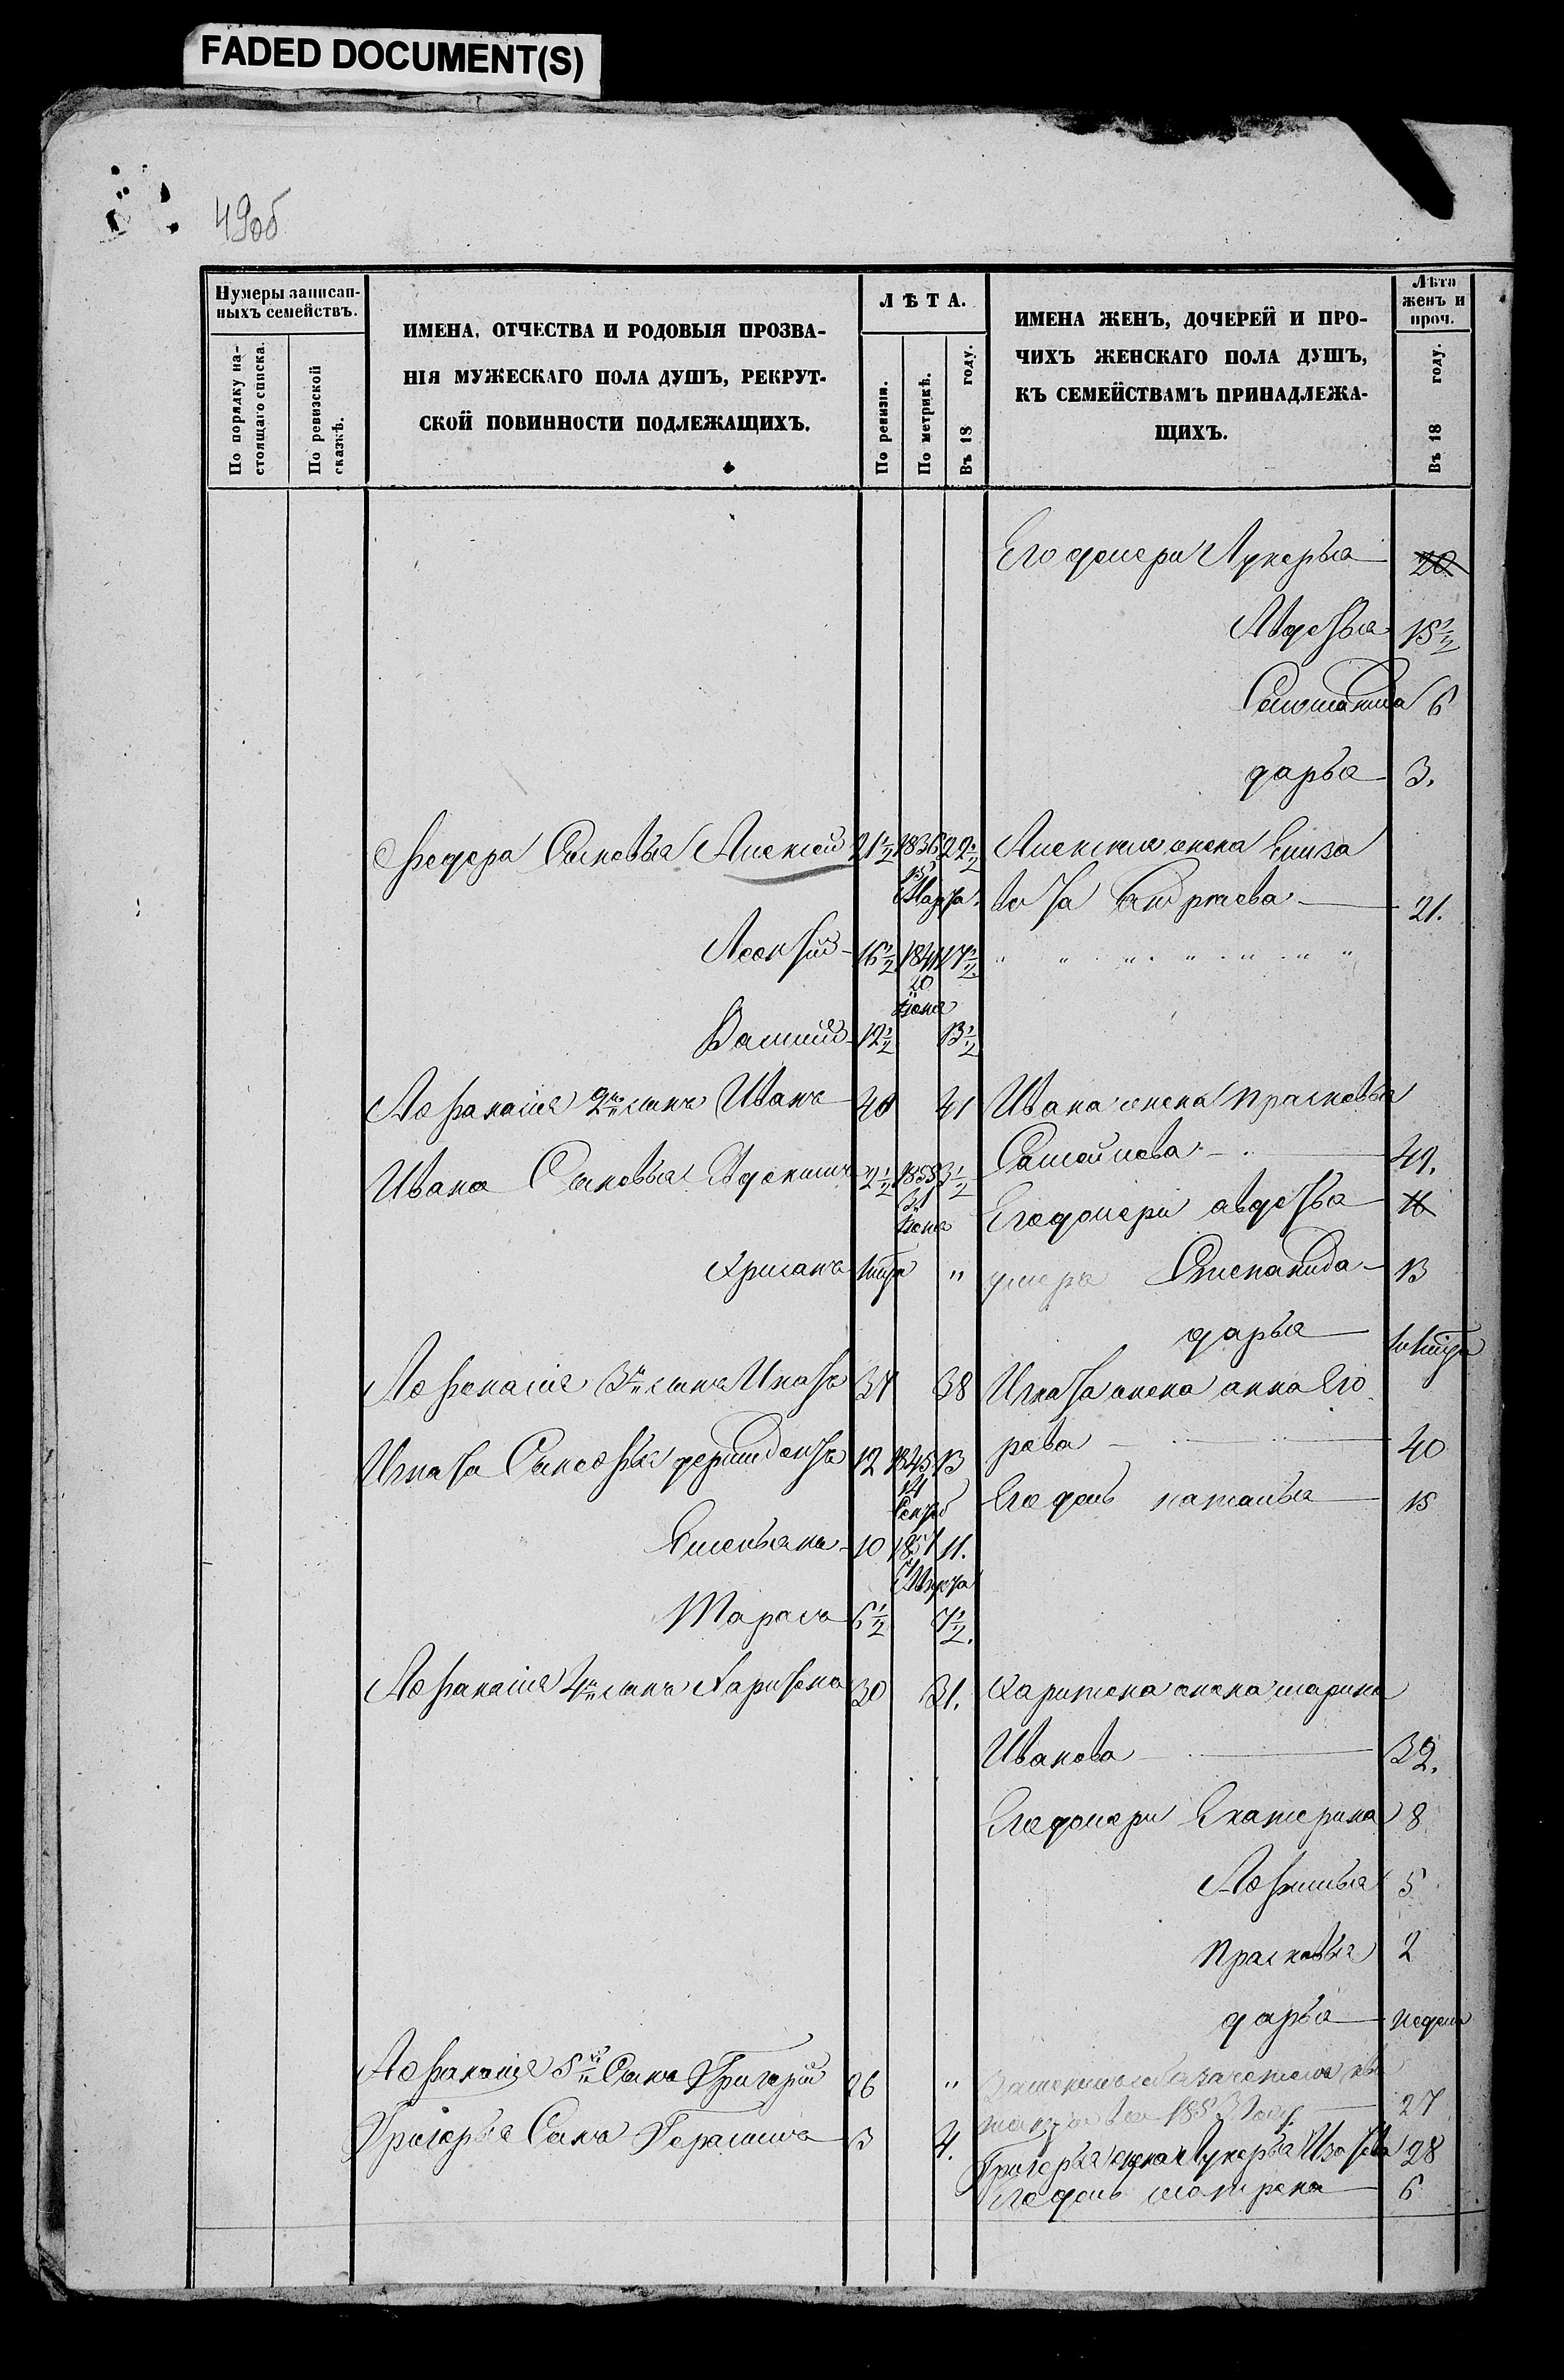 FADED DOCUMENT(S)
49об
Нумеры записан-
ныхъ семействъ.
По порядку на-
стоящаго списка.
По ревизской
сказкѣ.
ИМЕНА, ОТЧЕСТВА И РОДОВЫЯ ПРОЗВА-
НІЯ МУЖЕСКАГО ПОЛА ДУШЪ, РЕКРУТ-
СКОЙ ПОВИННОСТИ ПОДЛЕЖАЩИХЪ.
ЛѢТА.
По ревизіи.
По метрикѣ.
Въ 18 году.
ИМЕНА ЖЕНЪ, ДОЧЕРЕЙ И ПРО-
ЧИХЪ ЖЕНСКАГО ПОЛА ДУШЪ,
КЪ СЕМЕЙСТВАМЪ ПРИНАДЛЕЖА-
ЩИХЪ.
Лѣта
женъ и
проч.
Въ 18 году.
Его дочери Лукерья 20
Авдотья 15½
Соломанида 6
дарья 3.
Федора Сыновья Алексей 21½ 1836 22½ Алексея жена Елиза
15 Марта вета Андреева 21.
Леонтий 16½ 1841 17½ " " " " " " "
20 Іюня
Василий 12½ 13½
Афанасия 2й сынъ Иванъ 40 41 Ивана жена Прасковья
Самойлова 49.
Ивана Сыновья Евдокимъ 2½ 1855 3½
31 Іюня Его дочери авдотья 16
Хрисанъ " умеръ Степанида 13
дарья
Афанасия 3й сынъ Игнатъ 37 38 Игната жена анна Его
рова 40
Игната Сыновья 12 1845 13
14 Сентяб Его дочь наталья 15
Емельянъ 10 1847 11.
Марта
Тарасъ 6½ 7½.
Афанасия 4й сынъ Харитонъ 30 31. Харитона жена марина
Иванова 32.
Его дочери Екатерина 8
Афимья 5
Прасковья 2
дарья неделя
Афанасия 5й Сынъ Григорий 26 "
1853 году 27
Григорья Сынъ Герасимъ 3 4.
Григорья жена Лукерья Изотова 28
Его дочь матрена 6